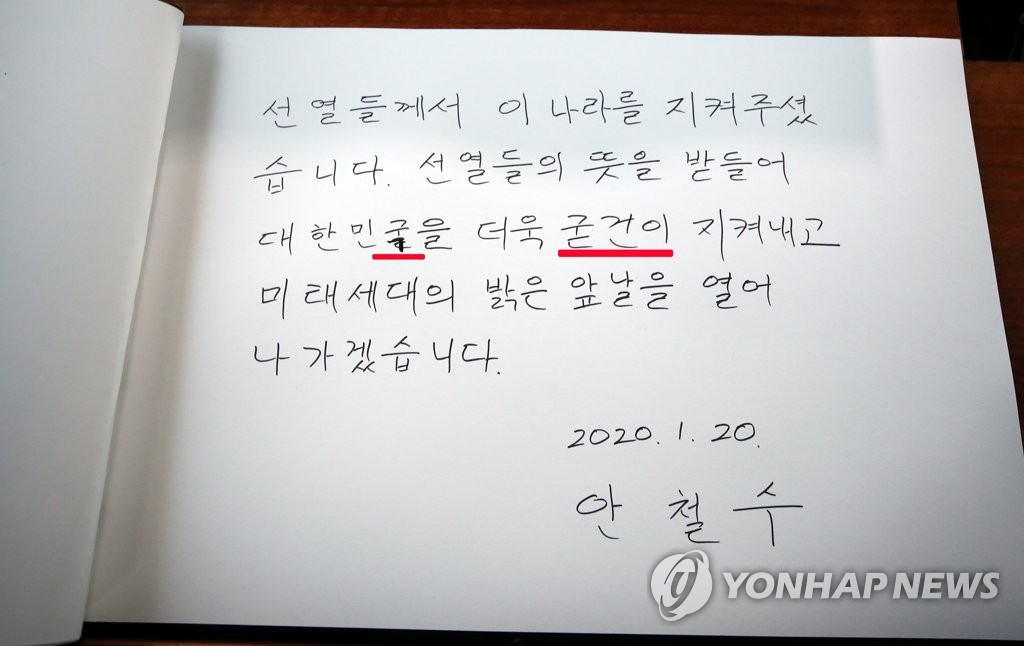 선열들께서 이 나라를 지켜주셨
습니다. 선열들의 뜻을 받들어
대한민국을 더욱 굳건이 지켜내고
미태세대의 밝은 앞날을 열어
나가겠습니다.
2020. 1. 20.
안 철 수
YONHAP NEWS